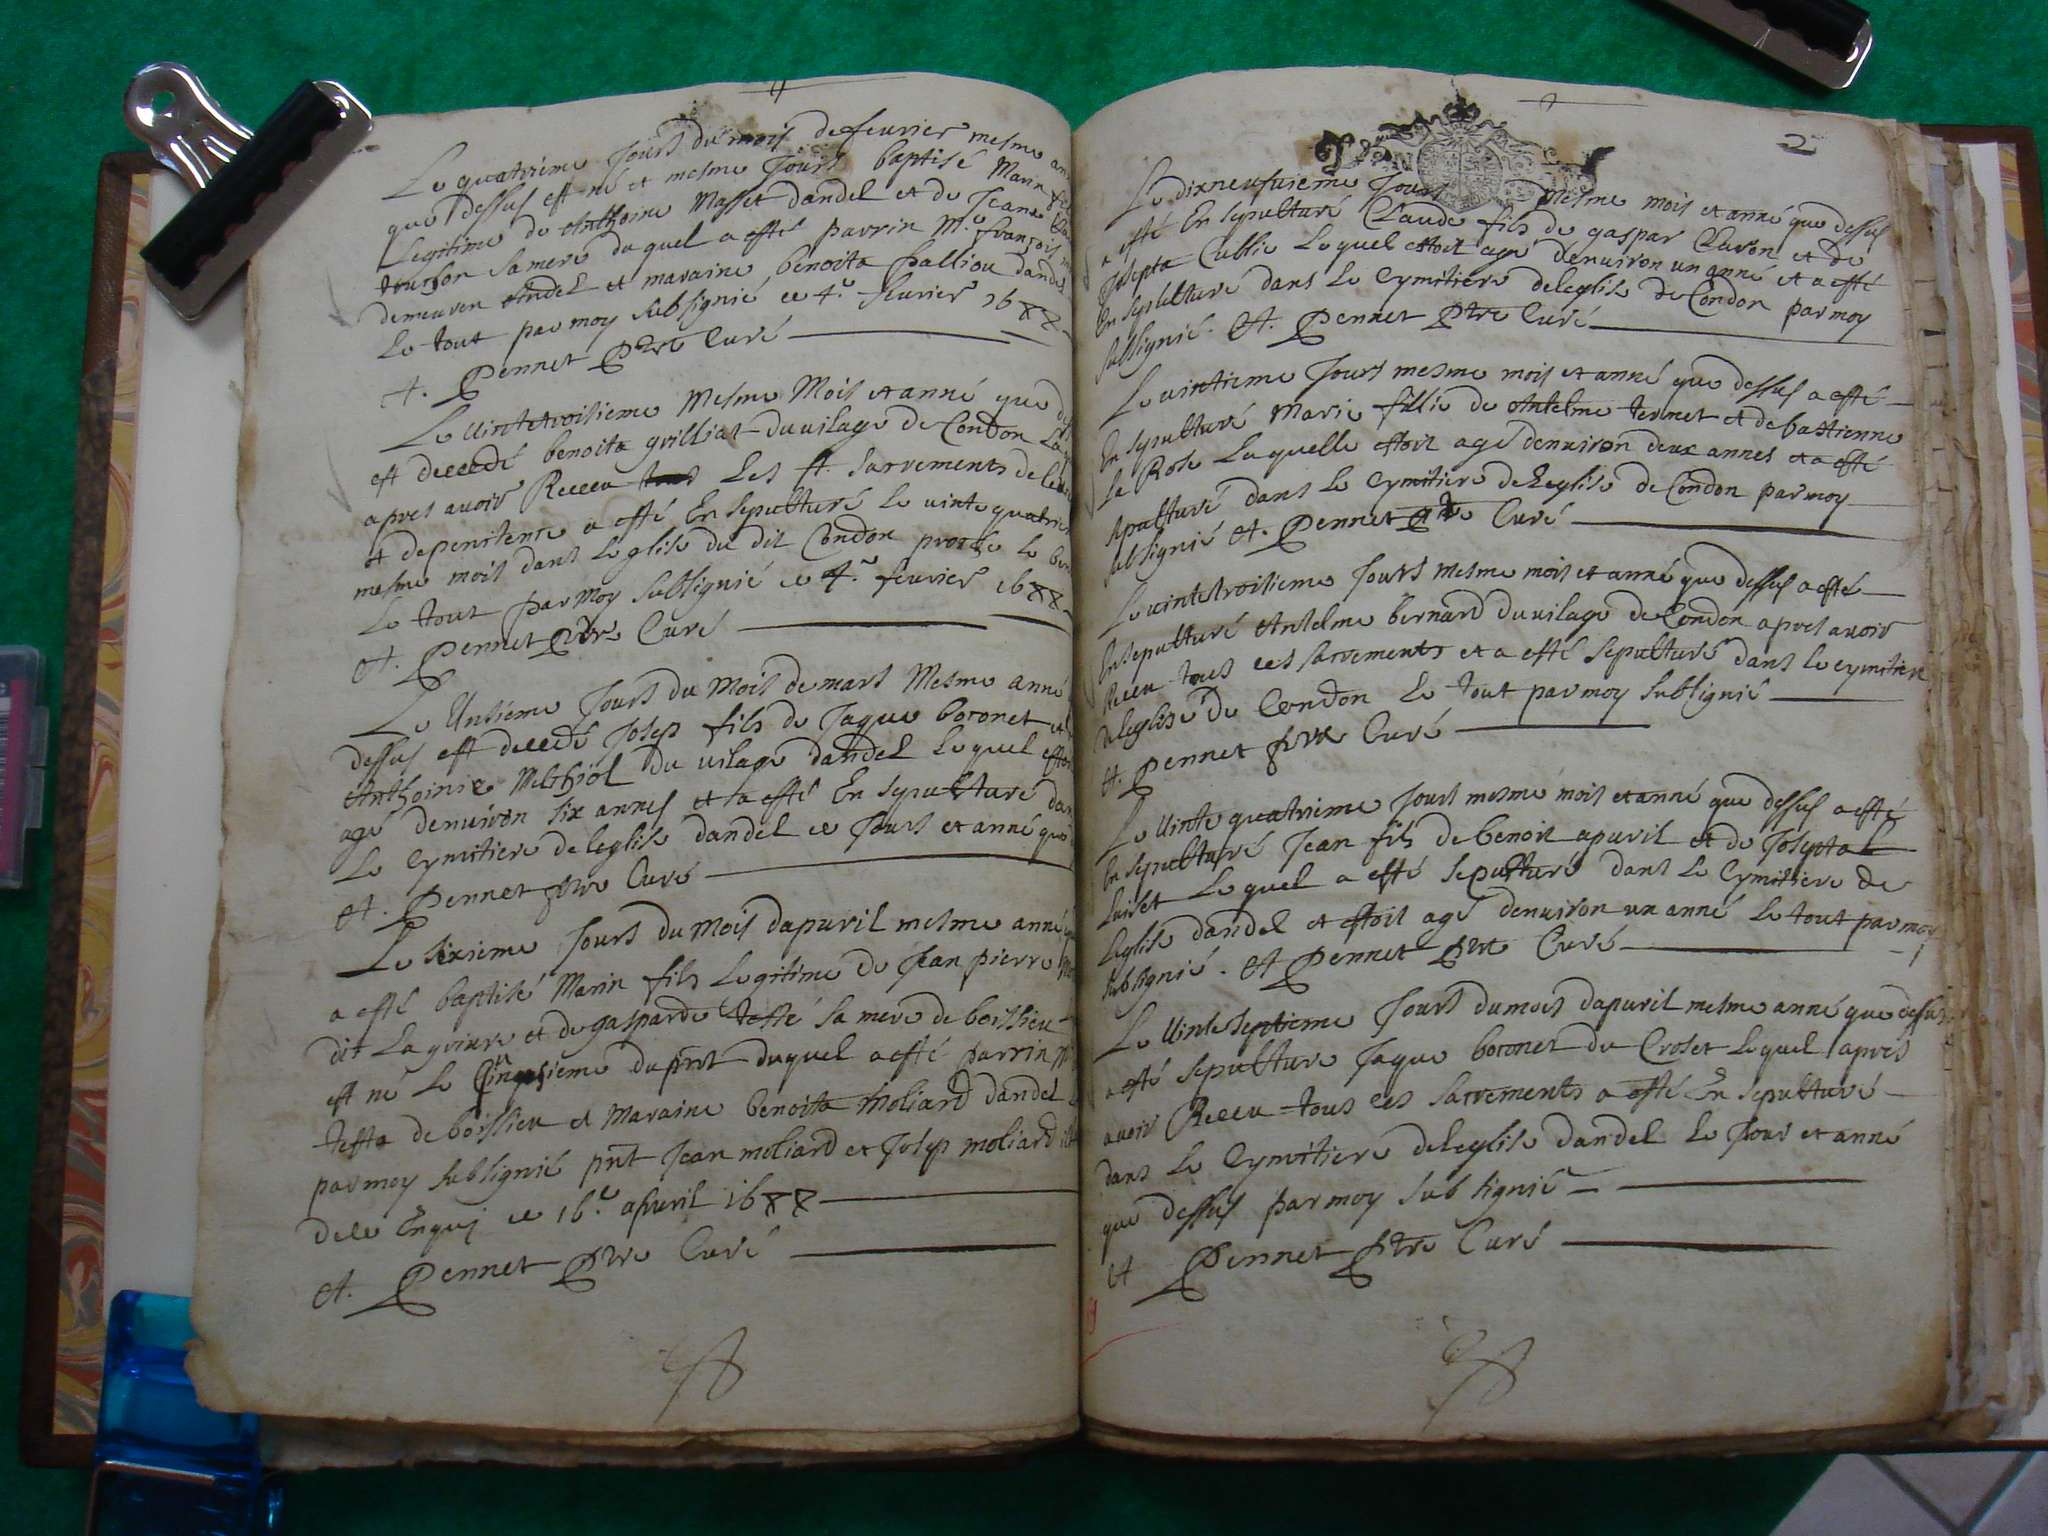 Le quatrieme Jours du mois de feuvrier mesme
que dessus est né et mesme Jours baptisé Marin
Legitime de Anthoine Masset dandel et de Jeane
tournon sa mere duquel a esté parrin Mr. françois
demeuren Andel et maraine benoita palliou dandel
Le tout par moy subsignié ce 4.e feuvrier 1688
A. Pennet Ptre Curé
Le vintetroisieme mesme Mois et anné que
est decedé benoita grilliat du vilage de Condon
apres avoir Receu tous Les st. sacrements de
et depenitence a esté En sepulturé Le vinte quatrie
mesme mois dans Leglise du dit Condon proche Le
Le tout par moy subsignié ce 4.e feuvrier 1688
A. Pennet Ptre Curé
Le Unsieme Jours du Mois de mars Mesme anné
dessus est decedé Josep fils de Jaque boronet et
Anthoinie Melthiol du vilage dandel Lequel estoit
agé denuiron six annes et a esté En sepulturé dans
Le Cymitiere de leglise dandel ce Jours et anné que
A. Pennet ptre Curé
Le sixieme Jours du Mois dapuril mesme anné
a esté baptisé Marin fils Legitime de Jean pierre
dit La griure et de gasparde testé sa mere de boissieu
est né Le Cinqsieme du prnt duquel a esté parrin
testa de boissieu et Maraine benoita Moliard dandel
par moy subsignié pnt Jean moliard et Josep moliard
dele Enquj ce 16.e apuril 1688
A. Pennet Ptre Curé
2
Le dixneufuieme Jours Mesme mois et anné que dessus
a esté En sepulturé Claude fils de gaspar Claron et de
Josepta Cullie Lequel estoit agé denuiron un anné et a esté
En sepulturé dans Le Cymitiere deleglise de Condon par moy
subsignié. A. Pennet Ptre Curé
Le vintieme Jours mesme mois et anné que dessus a esté
En sepulturé Marie fillie de Antelme ternet et de bastienne
La Rose Laquelle estoit agé denuiron deux annes et a esté
sepulturé dans Le Cymitiere de Leglise de Condon par moy
subsignié A. Pennet ptre Curé
Le vintetroisieme Jours mesme mois et anné que dessus a esté
En sepulturé Antelme bernard du vilage de Condon apres avoir
Receu tous ces sacrements et a esté sepulturé dans Le cymitiere
deleglise de Condon Le tout par moy subsignié
A. Pennet ptre Curé
Le vinte quatrieme Jours mesme mois et anné que dessus a esté
En sepulturé Jean fils de benoit apuril et de Josepta
Luiset Lequel a esté sepulturé dans Le Cymitiere de
Leglise dandel et estoit agé denuiron un anné Le tout par moy
subsignié. A Pennet Ptre Curé
Le Vinteseptieme Jours dumois dapuril mesme anné que dessus
a esté sepulture Jaque boronet du Croset Lequel apres
avoir Receu tous ces sacrements a esté En sepulturé
dans Le Cymitiere deleglise dandel Le Jour et anné
que dessus par moy subsignié
A Pennet ptre Curé